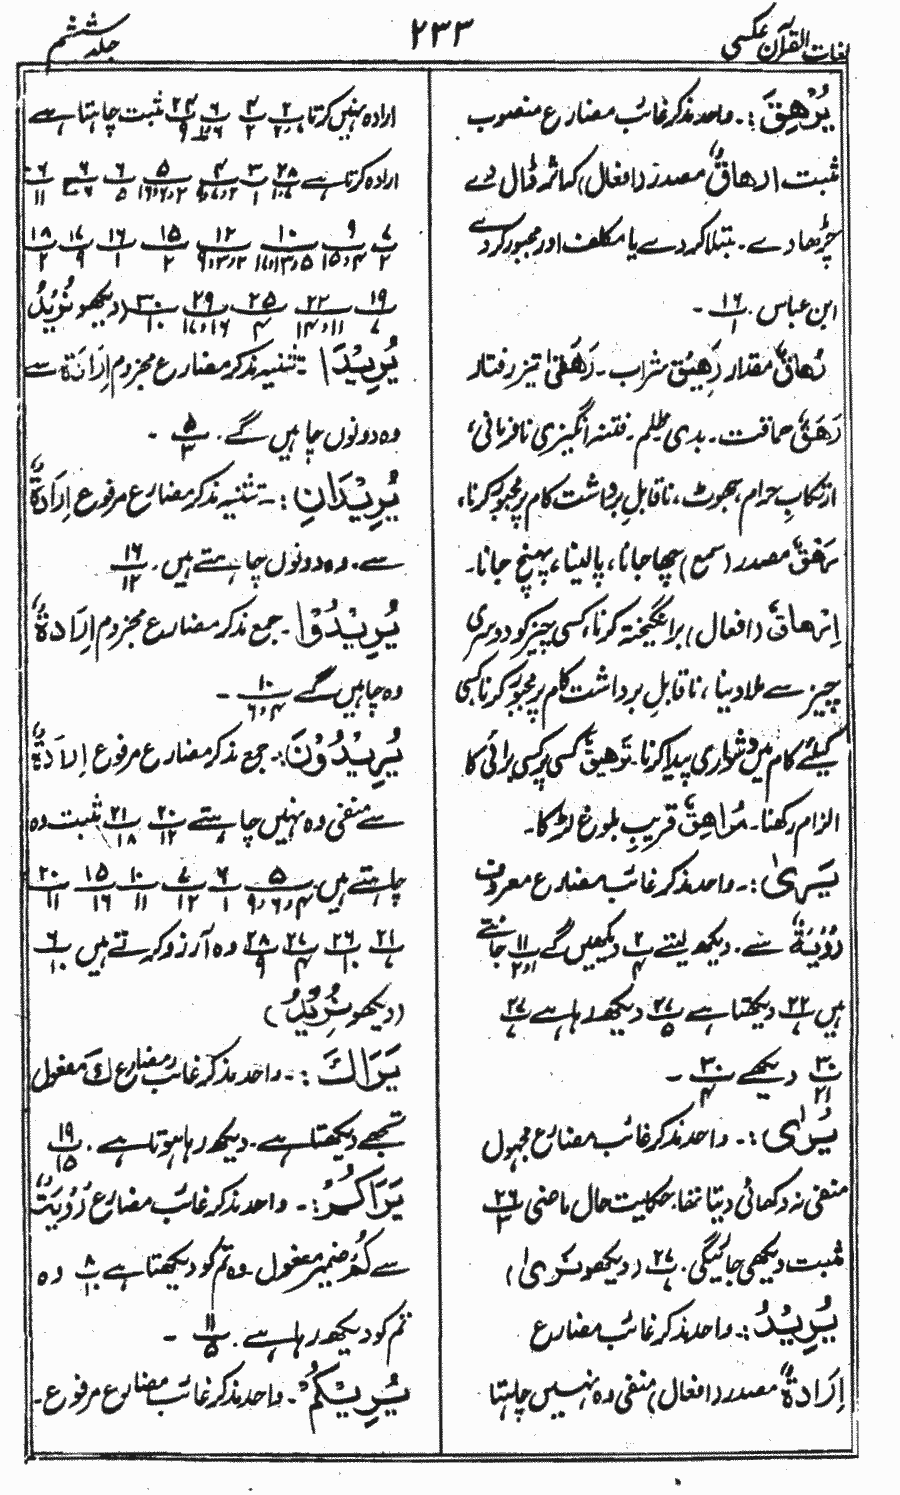 لغات القرآن عکسی
۲۳۳
جلد ششم
یُرْھِقَ :۔ واحد مذکر غائب مضارع منصوب
مثبت ارھاقٌ مصدر (افعال) کہ اثر ڈال دے
چڑھا دے ۔ مبتلا کردے یا مکلف اور مجبور کر دے
ابن عباس ۔ ۱۶/۱ ۔
رُھاقٌ مقدار رَھِیْق شراب ۔ رَھَقیٰ تیز رفتار
رَھَقٌ حماقت ۔ بدی ظلم ۔ فتنہ انگیزی نافرمانی،
ارتکابِ حرام، جھوٹ، ناقابلِ برداشت کام پر مجبور کرنا،
رَھَقٌ مصدر (سمع) چھا جانا، پالینا، پہنچ جانا۔
اِرْھاقٌ (افعال) برانگیختہ کرنا، کسی چیز کو دوسری
چیز سے ملا دینا، ناقابلِ برداشت کام پر مجبور کرنا کسی
کیلئے کام میں دشواری پیدا کرنا ۔ تَرْھِیقٌ کسی پر کسی برائی کا
الزام رکھنا ۔ مُرَاھِقٌ قریبِ بلوغ لڑکا ۔
یَرٰی :۔ واحد مذکر غائب مضارع معروف
رُؤْیَۃٌ سے ۔ دیکھ لیتے ۲/۴ دیکھیں گے ۱۱/۲ جانتے
ہیں ۲۲ دیکھتا ہے ۲۷/۵ دیکھ رہا ہے ۲۷
۳۰/۲۱ دیکھے ۳۰/۴ ۔
یُرٰی :۔ واحد مذکر غائب مضارع مجہول
منفی نہ دکھائی دیتا تھا، حکایت حال ماضی ۲۶/۳
مثبت دیکھی جائیگی ۔ ۲۷ (دیکھو نَرٰی)
یُرِیْدُ :۔ واحد مذکر غائب مضارع
اِرَادۃٌ مصدر (افعال) منفی وہ نہیں چاہتا
ارادہ نہیں کرتا ۲ ۴/۲ ۶ ۲۴/۹ مثبت چاہتا ہے
ارادہ کرتا ہے ۲۸ ۳/۱ ۴ ۵ ۶/۵ ۶ ۶/۱۱
۷/۲ ۹ ۱۰ ۱۲ ۱۵/۲ ۱۶/۱ ۱۷/۹ ۱۸/۲
۱۹/۷ ۲۲/۱۱،۱۴ ۲۵/۴ ۲۹/۱۶،۱۷ ۳۰/۱۰ (دیکھو نُرِیْدُ
یُرِیْدَا :۔ تثنیہ مذکر مضارع مجزوم اِرَادَۃ سے
وہ دونوں چاہیں گے ۔ ۵/۳ ۔
یُرِیْدَانِ :۔ تثنیہ مذکر مضارع مرفوع اِرَادۃٌ
سے ۔ وہ دونوں چاہتے ہیں ۔ ۱۶/۱۲
یُرِیْدُوْا ۔ جمع مذکر مضارع مجزوم اِرَادۃٌ
وہ چاہیں گے ۱۰/۴،۶ ۔
یُرِیْدُوْنَ :۔ جمع مذکر مضارع مرفوع اِرادۃٌ
سے منفی وہ نہیں چاہتے ۲۰/۱۲ ۲۱/۱۸ مثبت وہ
چاہتے ہیں ۔ ۵/۴،۶،۹ ۶/۱ ۷/۱۲ ۱۰/۱۱ ۱۵/۱۶ ۲۰/۱۱
۲۱/۷ ۲۶/۱۰ ۲۷/۴ ۲۸/۹ وہ آرزو کرتے ہیں ۶/۱۰
(دیکھو نُرِیْدُ)
یَرَاكَ :۔ واحد مذکر غائب مضارع كَ مفعول
تجھے دیکھتا ہے ۔ دیکھ رہا ہوتا ہے ۔ ۱۹/۱۵
یَرَاكُمْ :۔ واحد مذکر غائب مضارع رُؤْیَۃٌ
سے كُمْ ضمیر مفعول ۔ وہ تم کو دیکھتا ہے ۸/۱۰ وہ
تم کو دیکھ رہا ہے ۔ ۱۱/۵ ۔
یُرِیْكُمْ ۔ واحد مذکر غائب مضارع مرفوع ۔